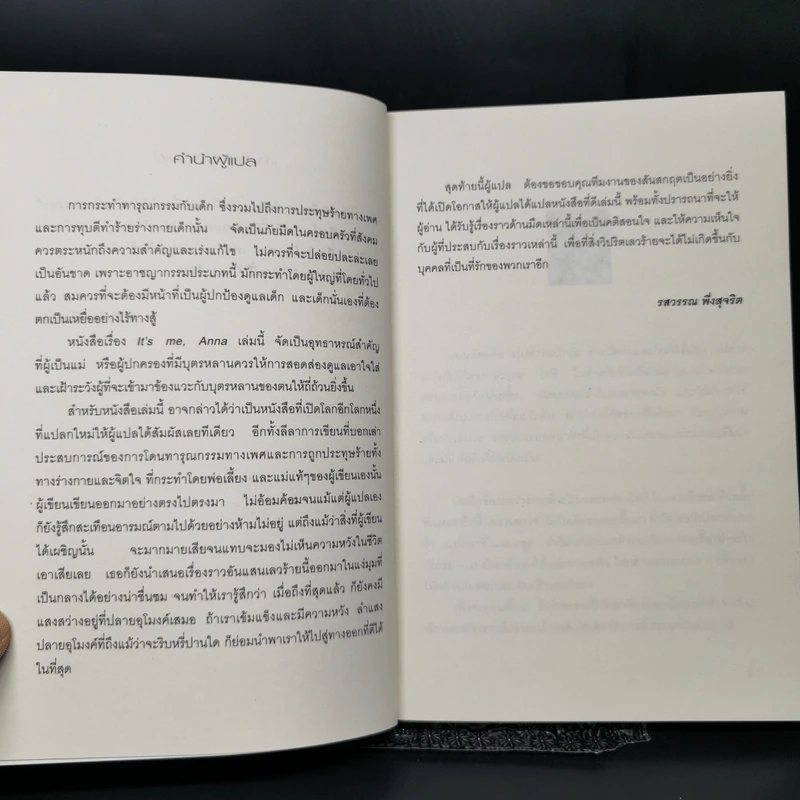 คำนำผู้แปล
การกระทำทารุณกรรมกับเด็ก ซึ่งรวมไปถึงการประทุษร้ายทางเพศ
และการทุบตีทำร้ายร่างกายเด็กนั้น จัดเป็นภัยมืดในครอบครัวที่สังคม
ควรตระหนักถึงความสำคัญและเร่งแก้ไข ไม่ควรที่จะปล่อยปละละเลย
เป็นอันขาด เพราะอาชญากรรมประเภทนี้ มักกระทำโดยผู้ใหญ่ที่โดยทั่วไป
แล้ว สมควรที่จะต้องมีหน้าที่เป็นผู้ปกป้องดูแลเด็ก และเด็กนั่นเองที่ต้อง
ตกเป็นเหยื่ออย่างไร้ทางสู้
หนังสือเรื่อง It's me, Anna เล่มนี้ จัดเป็นอุทธาหรณ์สำคัญ
ที่ผู้เป็นแม่ หรือผู้ปกครองที่มีบุตรหลานควรให้การสอดส่องดูแลเอาใจใส่
และเฝ้าระวังผู้ที่จะเข้ามาข้องแวะกับบุตรหลานของตนให้ถี่ถ้วนยิ่งขึ้น
สำหรับหนังสือเล่มนี้ อาจกล่าวได้ว่าเป็นหนังสือที่เปิดโลกอีกโลกหนึ่ง
ที่แปลกใหม่ให้ผู้แปลได้สัมผัสเลยทีเดียว อีกทั้งลีลาการเขียนที่บอกเล่า
ประสบการณ์ของการโดนทารุณกรรมทางเพศและการถูกประทุษร้ายทั้ง
ทางร่างกายและจิตใจ ที่กระทำโดยพ่อเลี้ยง และแม่แท้ๆของผู้เขียนเองนั้น
ผู้เขียนเขียนออกมาอย่างตรงไปตรงมา ไม่อ้อมค้อมจนแม้แต่ผู้แปลเอง
ก็ยังรู้สึกสะเทือนอารมณ์ตามไปด้วยอย่างห้ามไม่อยู่ แต่ถึงแม้ว่าสิ่งที่ผู้เขียน
ได้เผชิญนั้น จะมากมายเสียจนแทบจะมองไม่เห็นความหวังในชีวิต
เอาเสียเลย เธอก็ยังนำเสนอเรื่องราวอันแสนเลวร้ายนี้ออกมาในแง่มุมที่
เป็นกลางได้อย่างน่าชื่นชม จนทำให้เรารู้สึกว่า เมื่อถึงที่สุดแล้ว ก็ยังคงมี
แสงสว่างอยู่ที่ปลายอุโมงค์เสมอ ถ้าเราเข้มแข็งและมีความหวัง ลำแสง
ปลายอุโมงค์ที่ถึงแม้ว่าจะริบหรี่ปานใด ก็ย่อมนำพาเราให้ไปสู่ทางออกที่ดีได้
ในที่สุด
สุดท้ายนี้ผู้แปล ต้องขอขอบคุณทีมงานของสันสกฤตเป็นอย่างยิ่ง
ที่ได้เปิดโอกาสให้ผู้แปลได้แปลหนังสือที่ดีเล่มนี้ พร้อมทั้งปรารถนาที่จะให้
ผู้อ่าน ได้รับรู้เรื่องราวด้านมืดเหล่านี้เพื่อเป็นคติสอนใจ และให้ความเห็นใจ
กับผู้ที่ประสบกับเรื่องราวเหล่านี้ เพื่อที่สิ่งวิปริตเลวร้ายจะได้ไม่เกิดขึ้นกับ
บุคคลที่เป็นที่รักของพวกเราอีก
รสวรรณ พึ่งสุจริต